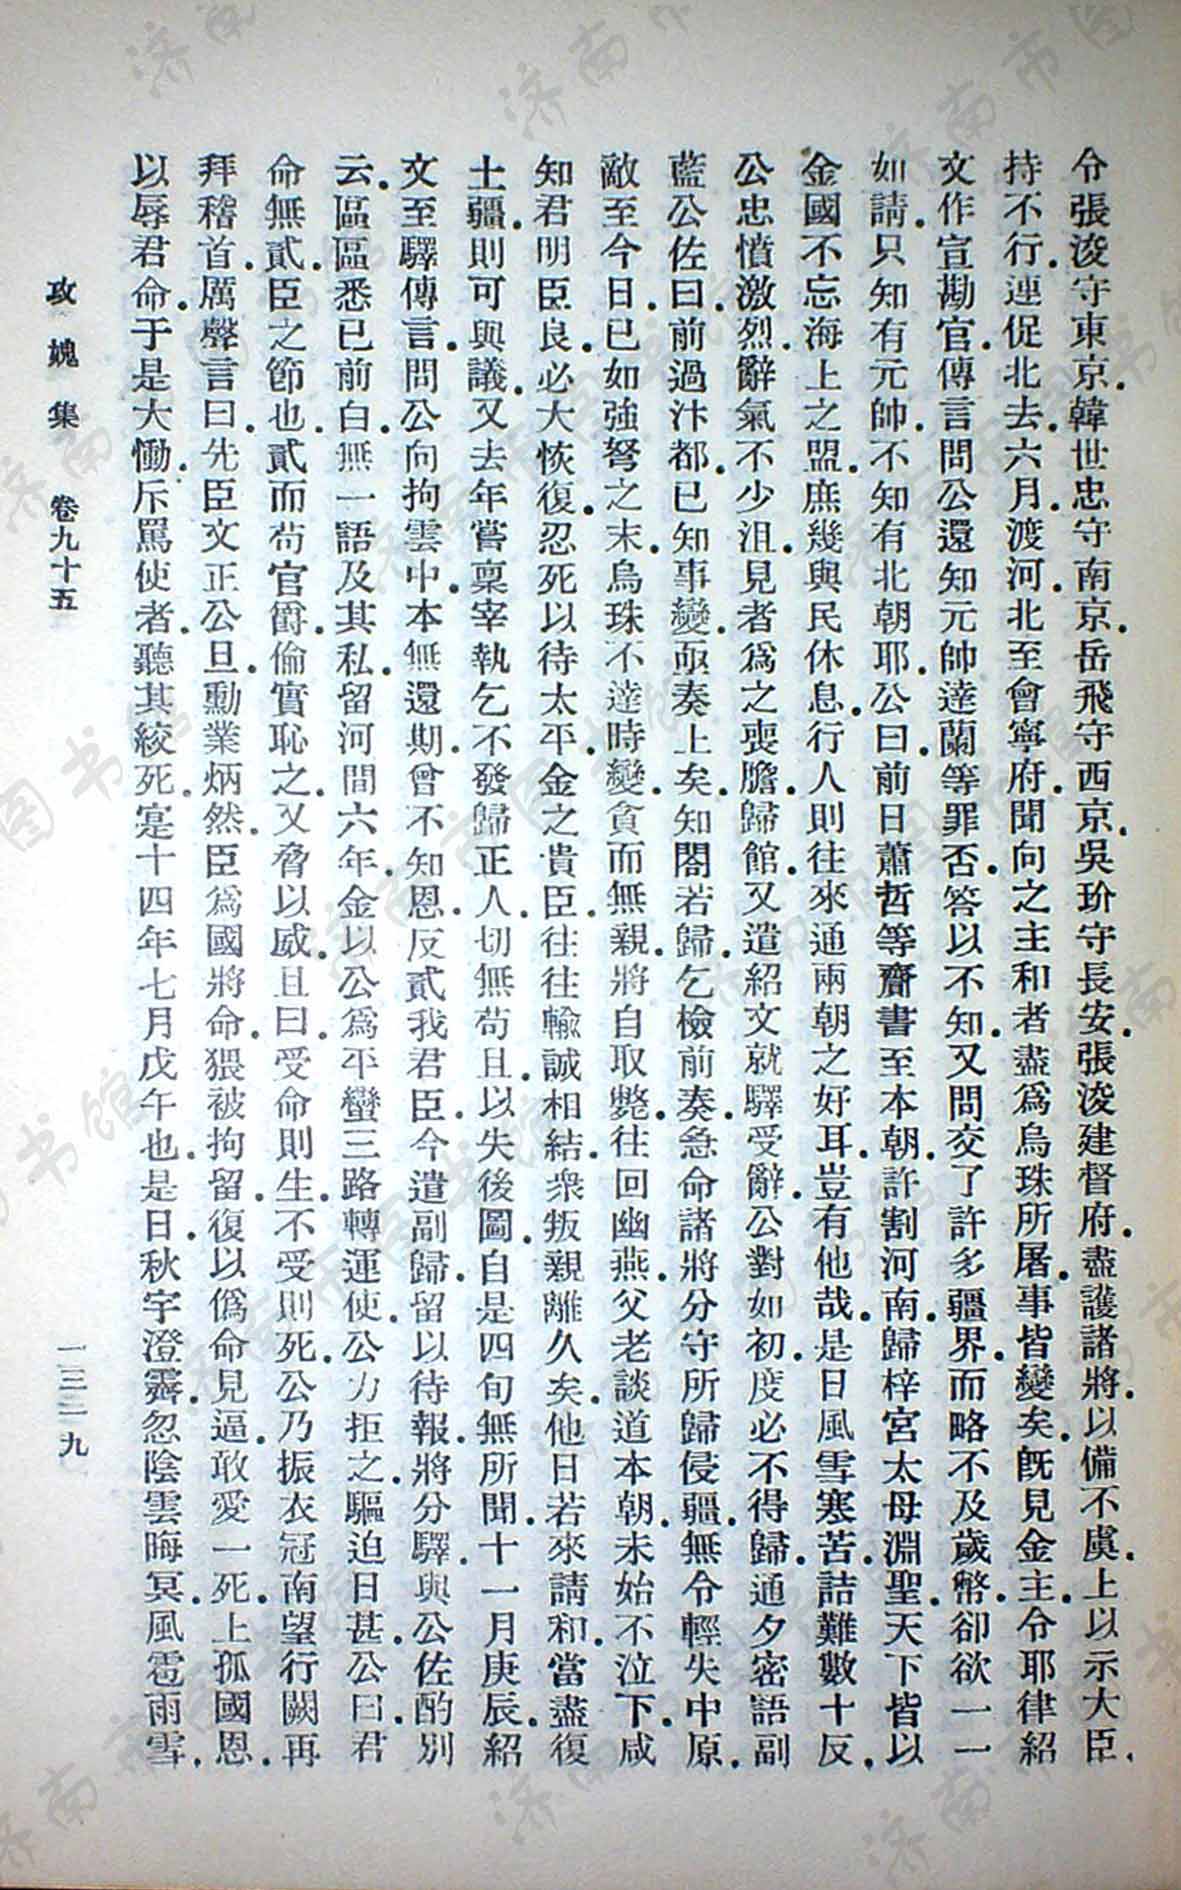 令張浚守東京.韓世忠守南京.岳飛守西京.吳玠守長安.張浚建督府.盡護諸將.以備不虞.上以示大臣.
持不行.連促北去.六月.渡河.北至會寧府.聞向之主和者盡爲烏珠所屠.事皆變矣.既見金主.令耶律紹
文作宣勘官.傳言問公還知元帥達蘭等罪否.答以不知.又問交了許多疆界.而略不及歲幣.卻欲一一
如請.只知有元帥.不知有北朝耶.公曰.前日蕭哲等齎書至本朝.許割河南.歸梓宮太母淵聖.天下皆以
金國不忘海上之盟.庶幾與民休息.行人則往來通兩朝之好耳.豈有他哉.是日風雪寒苦.詰難數十反.
公忠憤激烈.辭氣不少沮.見者爲之喪膽.歸館.又遣紹文就驛受辭.公對如初.度必不得歸.通夕密語副
藍公佐曰.前過汴都.已知事變.亟奏上矣.知閤若歸.乞檢前奏.急命諸將分守所歸侵疆.無令輕失中原.
敵至今日.已如強弩之末.烏珠不達時變.貪而無親.將自取斃.往回幽燕.父老談道本朝.未始不泣下.咸
知君明臣良.必大恢復.忍死以待太平.金之貴臣.往往輸誠相結.衆叛親離久矣.他日若來請和.當盡復
土疆.則可與議.又去年嘗稟宰執乞不發歸正人.切無苟且.以失後圖.自是四旬無所聞.十一月庚辰.紹
文至驛傳言.問公向拘雲中.本無還期.曾不知恩.反貳我君臣.今遣副歸.留以待報.將分驛.與公佐酌別
云.區區悉已前白.無一語及其私.留河間六年.金以公爲平灤三路轉運使.公力拒之.驅迫日甚.公曰.君
命無貳.臣之節也.貳而苟官爵.倫實恥之.又脅以威.且曰.受命則生.不受則死.公乃振衣冠南望行闕.再
拜稽首.厲聲言曰.先臣文正公旦.勳業炳然.臣爲國將命.猥被拘留.復以僞命見逼.敢愛一死.上孤國恩.
以辱君命.于是大慟.斥罵使者.聽其絞死.寔十四年七月戊午也.是日.秋宇澄霽.忽陰雲晦冥.風雹雨雪.
攻媿集 卷九十五 一三二九
济南市图书馆